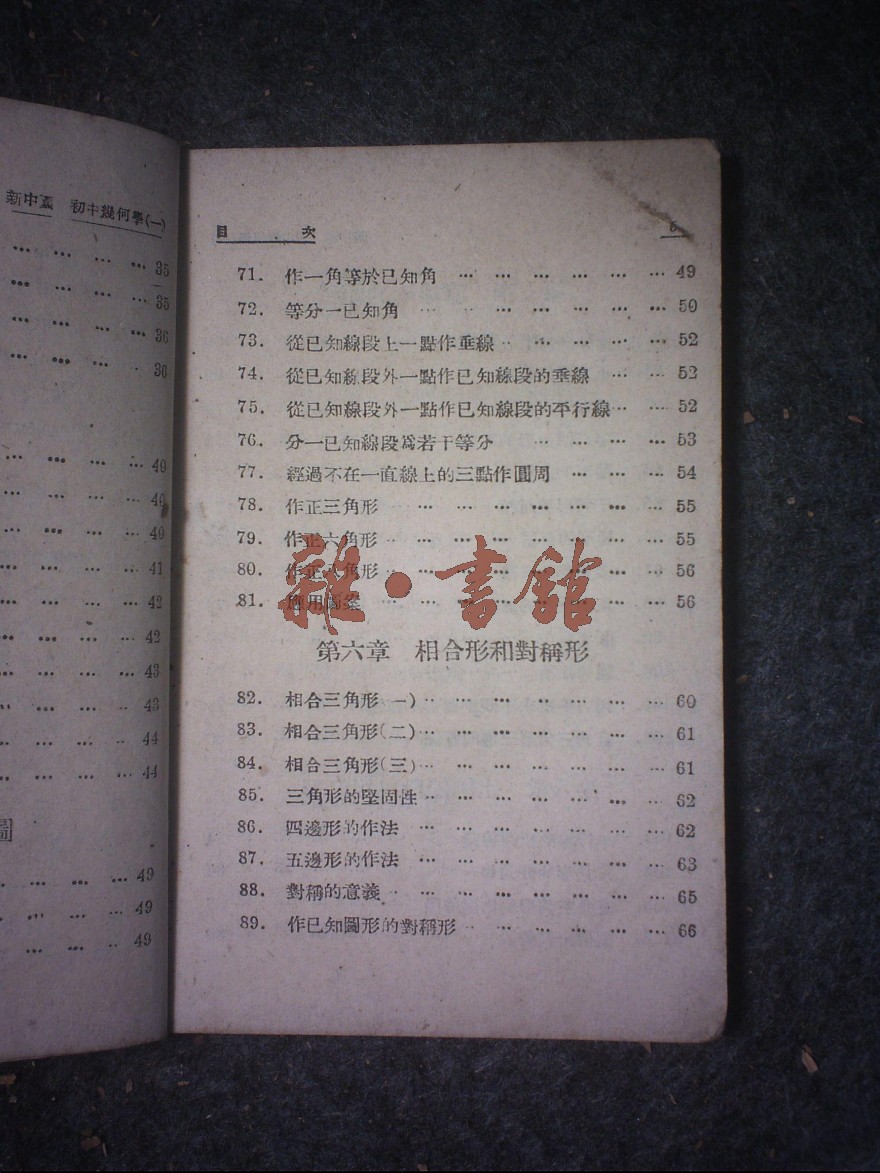 新中華 初中幾何學(一)
… … … … 35
… … … … 35
… … … … 36
… … … 36
… … … … 40
… … … … 40
… … … … 40
… … … … 41
… … … … 42
… … … … 42
… … … … 43
… … … … 43
… … … … 44
… … … … 44
圖
… … … … 49
… … … … 49
… … … … 49
目 次
71. 作一角等於已知角 … … … … … … 49
72. 等分一已知角 … … … … … … 50
73. 從已知線段上一點作垂線 … … … … … 52
74. 從已知線段外一點作已知線段的垂線 … … 52
75. 從已知線段外一點作已知線段的平行線 … … 52
76. 分一已知線段爲若干等分 … … … … 53
77. 經過不在一直線上的三點作圓周 … … … 54
78. 作正三角形 … … … … … … … 55
79. 作正六角形 … … … … … … … 55
80. 作正八角形 … … … … … … … 56
81. 應用圖案 … … … … … … … … 56
雜·書館
第六章 相合形和對稱形
82. 相合三角形(一) … … … … … … … 60
83. 相合三角形(二) … … … … … … … 61
84. 相合三角形(三) … … … … … … … 61
85. 三角形的堅固性 … … … … … … … 62
86. 四邊形的作法 … … … … … … … 62
87. 五邊形的作法 … … … … … … … 63
88. 對稱的意義 … … … … … … … … 65
89. 作已知圖形的對稱形 … … … … … … 66